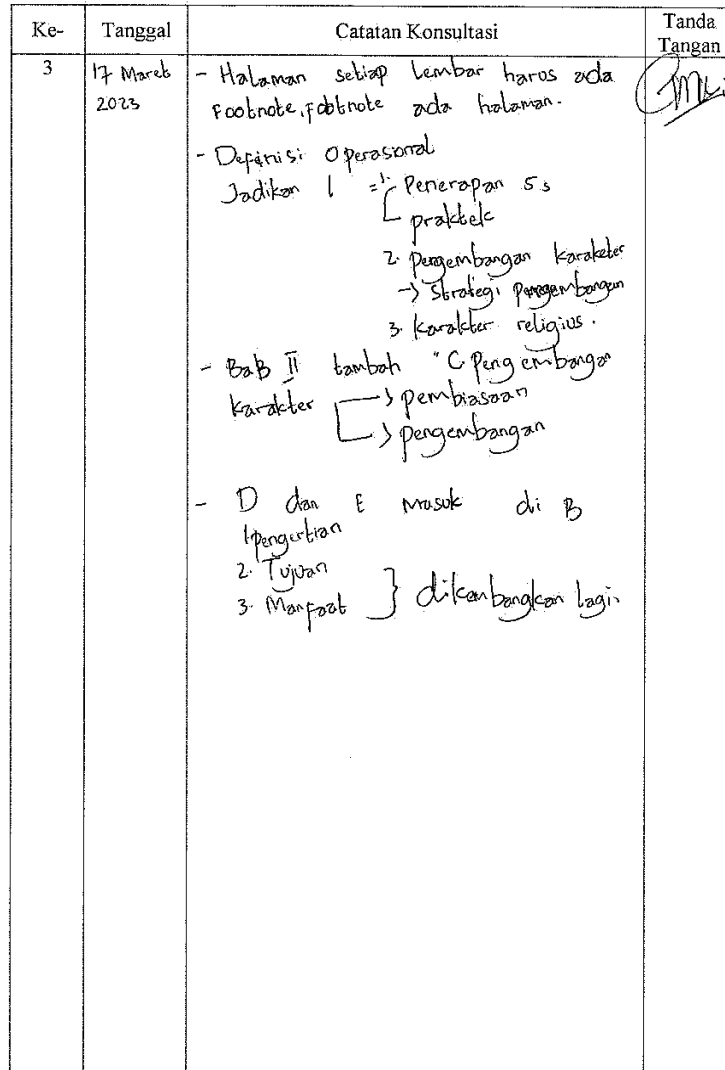 Ke- Tanggal Catatan Konsultasi Tanda Tangan
3 17 Maret 2023
- Halaman setiap lembar harus ada
Footnote, footnote ada halaman.
- Definisi Operasional
Jadikan 1 = 1. Penerapan 5s
praktek
2. Pengembangan karakter
→ Strategi pengembangan
3. Karakter religius.
- BaB II tambah "C Pengembanga
Karakter → pembiasaan
→ pengembangan
- D dan E masuk di B
1. Pengertian
2. Tujuan
3. Manfaat } dikembangkan lagi.